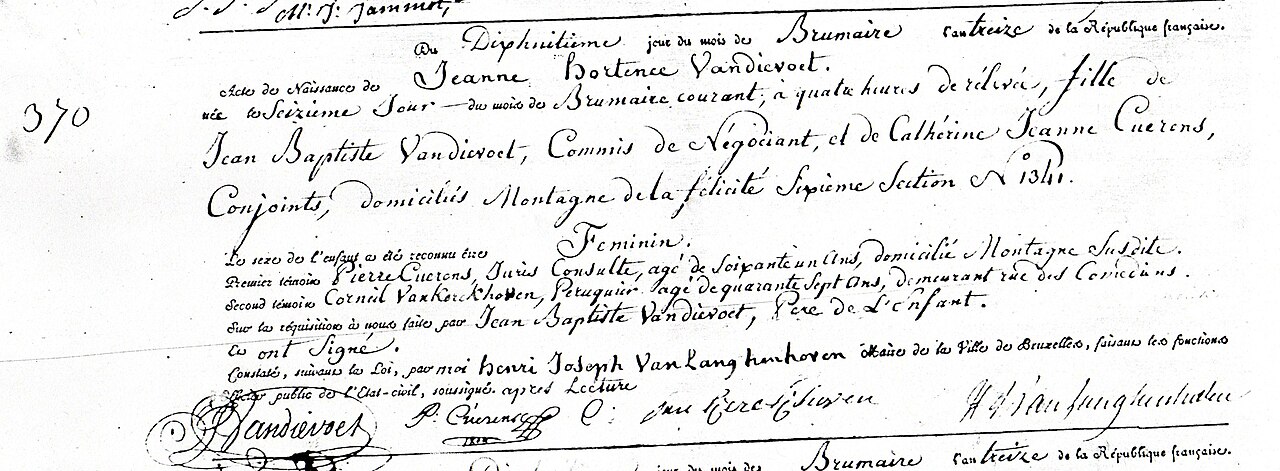 M. J. Jammot,
Du Dixhuitième jour du mois de Brumaire l'an treize de la République française.
Acte de Naissance de Jeanne Hortence Vandievoet.
née le Seizième Jour du mois de Brumaire courant, à quatre heures de rélévée, fille de
370
Jean Baptiste Vandievoet, Commis de Négociant, et de Cathérine Jeanne Cuerens,
Conjoints, domiciliés Montagne de la félicité Sixième Section N° 1341.
Le sexe de l'enfant a été reconnu être Feminin.
Premier témoin Pierre Cuerens, Juris Consulte, agé de Soixante un Ans, domicilié Montagne Susdite.
Second témoin Corneil Vankerckhoven, Peruquier agé de quarante Sept Ans, demeurant rue des Comediens.
Sur la réquisition à nous faite par Jean Baptiste Vandievoet, Pere de L'enfant.
Et ont Signé.
Constaté, suivant la Loi, par moi henri Joseph Van Langhenhoven Maire de la Ville de Bruxelles, faisant les fonctions
public de l'Etat-civil, soussigné. apres Lecture
Vandievoet P. Cuerens C: van Kerckhoven H J Van Langhenhoven
jour du mois de Brumaire l'an treize de la République française.